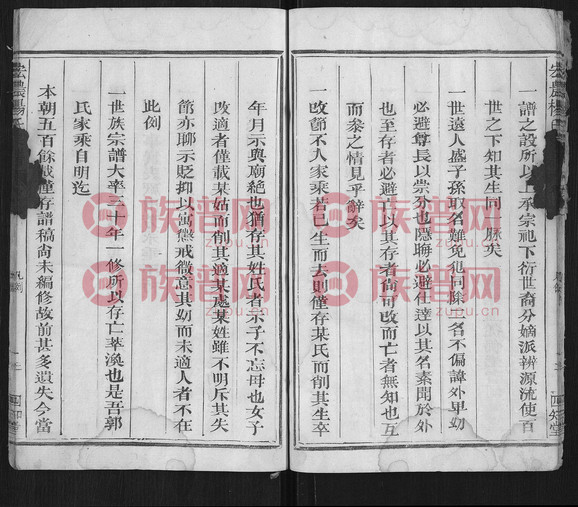 一譜之設所以上承宗祀下衍世裔分嫡派辨源流使百
世之下知其生同一脉矣
一世遠人盛子孫取名難免犯同除二名不偏諱外卑幼
必避尊長以崇分也隱晦必避仕達以其名素聞於外
也至存者必避亡以其存者尚可改而亡者無知也互
而參之情見乎辭矣
一改節不入家乘若已生而去則僅存某氏而削其生卒
年月示與廟絶也猶存其姓氏者示子不忘母也女子
改適者僅載某姑而削其適某處某姓雖不明斥其失
節亦聊示貶抑以寓懲戒微意其幼而未適人者不在
此例
一世族宗譜大率三十年一修所以存亡萃渙也是吾郭
氏家乘自明迄
本朝五百餘載僅存譜稿尚未編修故前甚多遺失今當
宏農楊氏
凡例
四知堂
宏農楊
四知堂
族譜网
zupu.cn
族譜网
zupu.cn
族譜网
zupu.cn
族譜网
zupu.cn
族譜网
zupu.cn
族譜网
zupu.cn